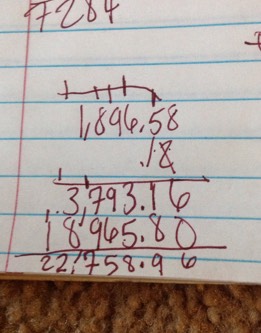 7284
1,896.58
.12
3,793.16
18,965.80
22,758.96